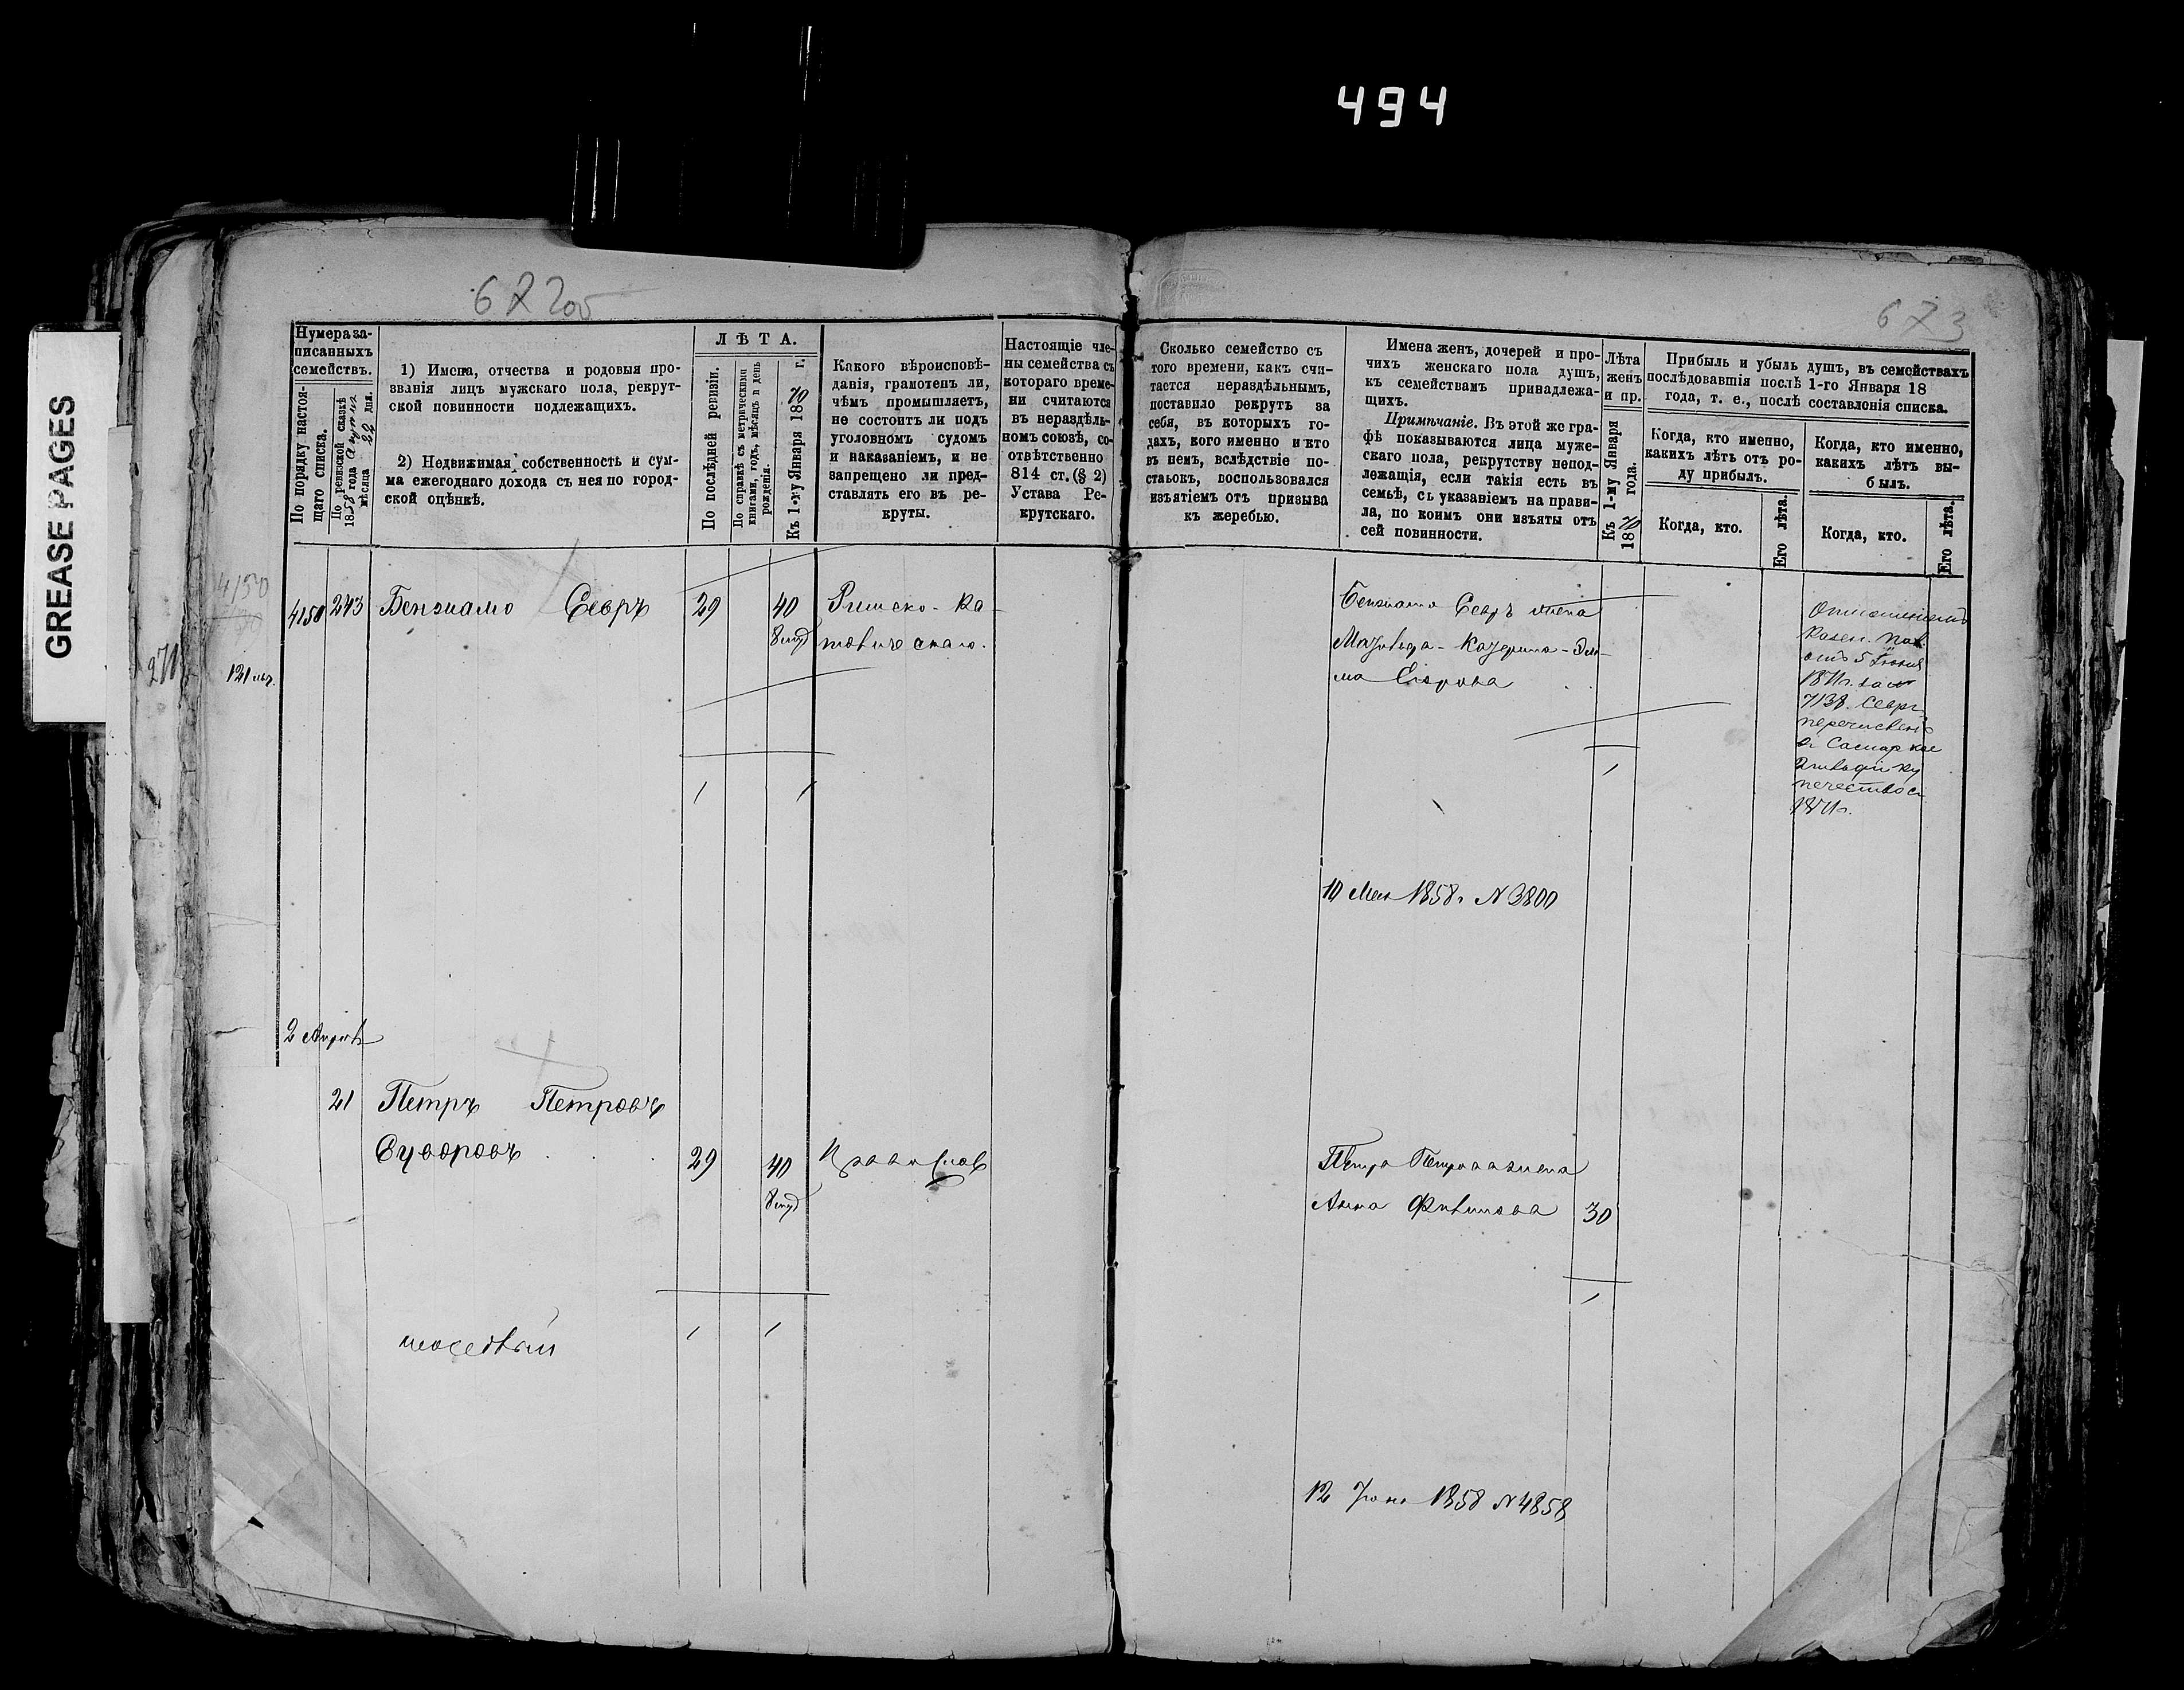 494
GREASE PAGES
673
Нумера за-
писанныхъ
семействъ.
По порядку настоя-
щаго списка.
По ревизской сказкѣ
1858 года
мѣсяца 22 дня.
1) Имена, отчества и родовыя про-
званія лицъ мужскаго пола, рекрут-
ской повинности подлежащихъ.
2) Недвижимая собственность и сум-
ма ежегоднаго дохода съ нея по город-
ской оцѣнкѣ.
ЛѢТА.
По послѣдней ревизіи.
По справкѣ съ метрическими
книгами, годъ, мѣсяцъ и день
рожденія.
Къ 1-му Января 1870 г.
Какого вѣроисповѣ-
данія, грамотенъ ли,
чѣмъ промышляетъ,
не состоитъ ли подъ
уголовномъ судомъ
и наказаніемъ, и не
запрещено ли пред-
ставлять его въ ре-
круты.
Настоящіе чле-
ны семейства съ
котораго време-
ни считаются
въ нераздѣль-
номъ союзѣ, со-
отвѣтственно
814 ст. (§ 2)
Устава Ре-
крутскаго.
Сколько семейство съ
того времени, какъ счи-
тается нераздѣльнымъ,
поставило рекрутъ за
себя, въ которыхъ го-
дахъ, кого именно и кто
въ немъ, вслѣдствіе по-
ставокъ, воспользовался
изъятіемъ отъ призыва
къ жеребью.
Имена женъ, дочерей и про-
чихъ женскаго пола душъ,
къ семействамъ принадлежа-
щихъ.
Примѣчаніе. Въ этой же гра-
фѣ показываются лица муже-
скаго пола, рекрутству непод-
лежащія, если такія есть въ
семьѣ, съ указаніемъ на прави-
ла, по коимъ они изъяты отъ
сей повинности.
Лѣта
женъ
и пр.
Къ 1-му Января
1870 года.
Прибыль и убыль душъ, въ семействахъ
послѣдовавшія послѣ 1-го Января 18
года, т. е., послѣ составленія списка.
Когда, кто именно,
какихъ лѣтъ отъ ро-
ду прибылъ.
Когда, кто.
Его лѣта.
Когда, кто именно,
какихъ лѣтъ вы-
былъ.
Когда, кто.
Его лѣта.
4150
271
4150 243 Бензиамо Севръ 29 40 Римско-Ка-
толическаго.
Бензиамо Севръ жена
Казерина-Эм-
ма
от 5 Іюня
1871г. за №
7138. Севръ
перечисленъ
въ Самарское
2 гильдіи ку
печество съ
1871г.
1 1 1
10 Мая 1858г N 3800
21 Петръ Петровъ
Суворовъ 29 40 Православ
Петра Петрова жена
Анна 30
1 1 1
12 Іюня 1858 N 4858